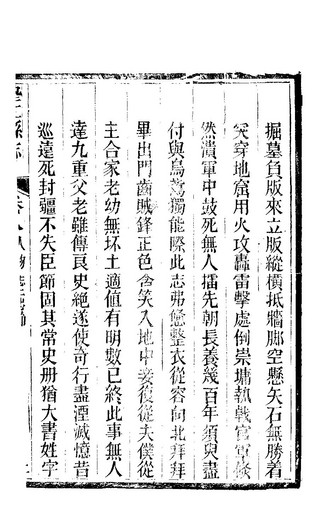 掘墓負版來立版縱橫抵牆腳空懸矢石無勝着
突穿地窟用火攻轟雷擊處倒崇墉執戟官軍倏
然潰軍中鼓死無人擂先朝長養幾百年須臾盡
付與烏鳶獨能勝此志弗戀整衣從容向北拜拜
畢出門齒賊鋒正色含笑入地中妾復從夫僕從
主合家老幼無坏土適值有明數已終此事無人
達九重父老雖傳良史絕遂使奇行盡湮滅憶昔
巡遠死封疆不失臣節固其常史册猶大書姓字
縣志
卷八人物志